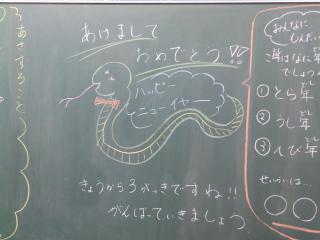 あさすること
あけまして
おめでとう!!
ハッピー
ニューイヤー
きょうから3がっきですね!!
がんばっていきましょう
みんなに
しつもん
ことしはなに年
でしょう
①とら年
②うし年
③へび年
せいかいは…
〇〇